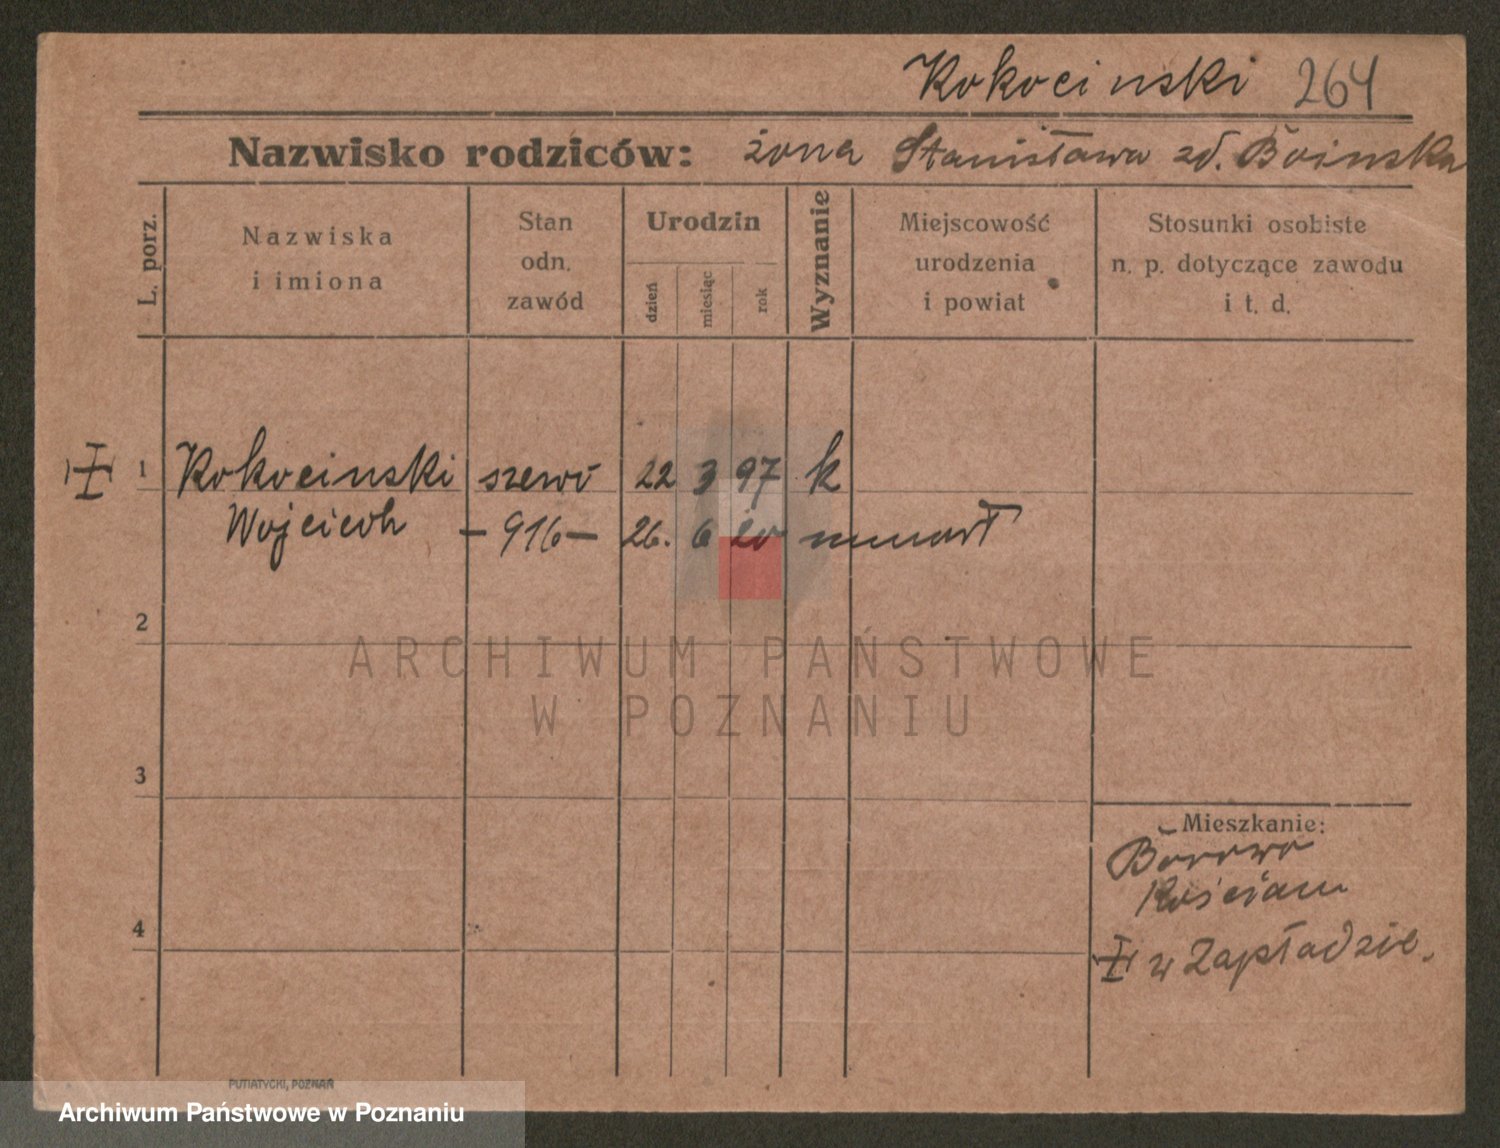 Kokocinski 264
Nazwisko rodziców: żona Stanisława zd. Boinska
L. porz.
Nazwiska
i imiona
Stan
odn.
zawód
Urodzin
dzień
miesiąc
rok
Wyznanie
Miejscowość
urodzenia
i powiat
Stosunki osobiste
n. p. dotyczące zawodu
i t. d.
1 Kokocinski szewc 22 3 97 k
Wojciech – 916 – 26. 6 20 umarł
2
ARCHIWUM PAŃSTWOWE
W POZNANIU
3
Mieszkanie:
Borowo
Kościan
4
w Zapładzie.
PUTIATYCKI, POZNAŃ
Archiwum Państwowe w Poznaniu